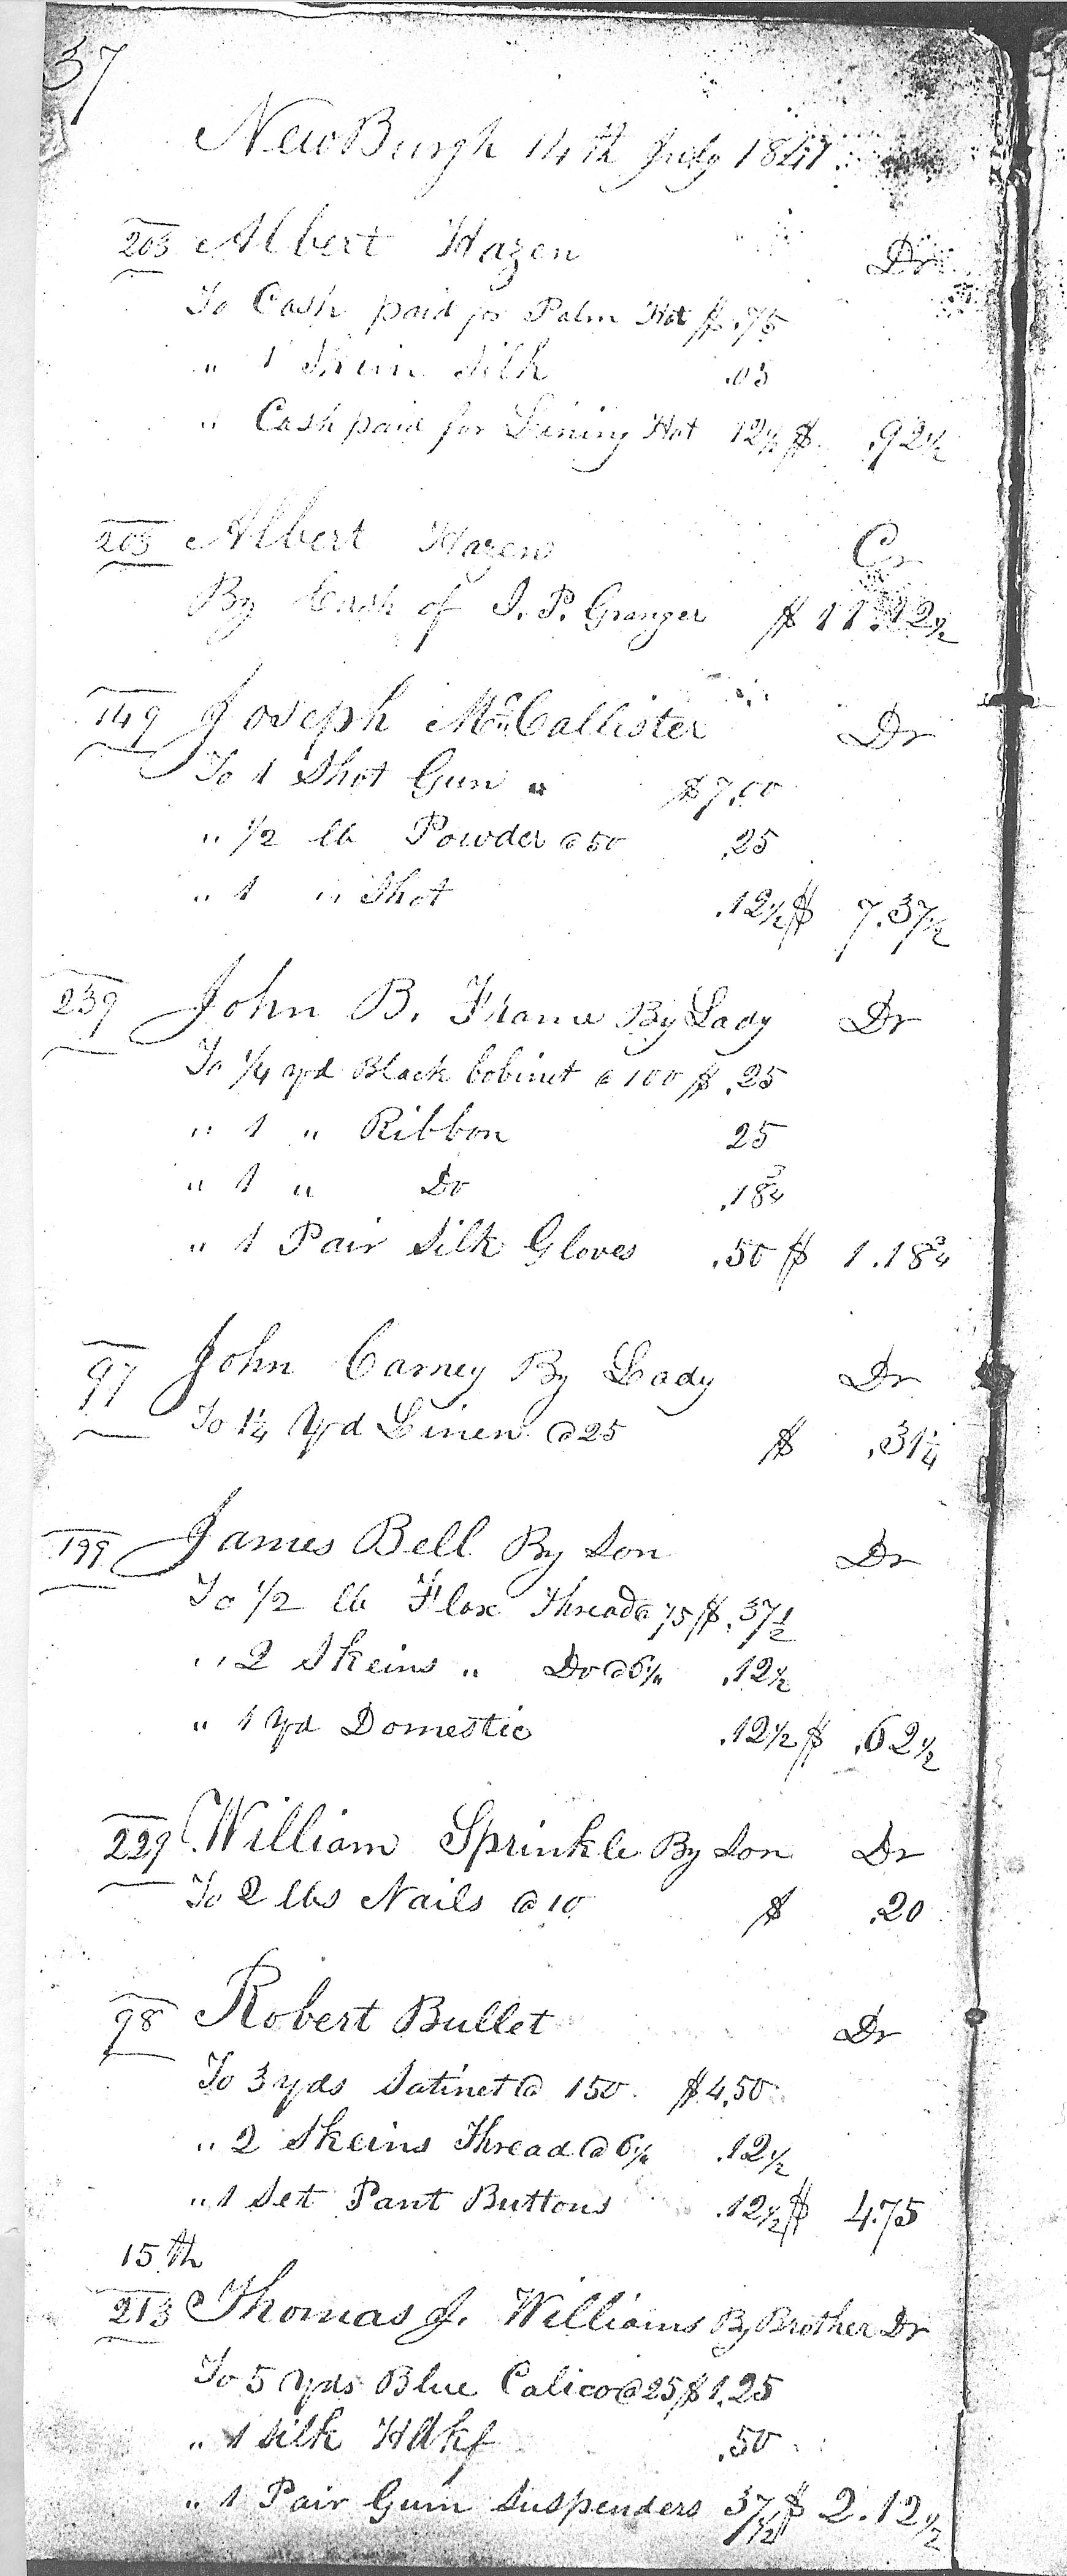 37
NewBurgh 14th July 1841
203 Albert Hazen Dr
To Cash paid for Palm Hat $ .75
" 1 Skein Silk .05
" Cash paid for Lining Hat 12½ $ .92½
203 Albert Hazen Cr
By Cash of J. P. Granger $ 11.12½
149 Joseph McCallister Dr
To 1 Shot Gun " $7.00
" ½ lb Powder @ 50 .25
" 1 " Shot .12½ $ 7.37½
239 John B. Frame By Lady Dr
To ¼ yd Black bobinet @ 100 $ .25
" 1 " Ribbon 25
" 1 " Do .18¾
" 1 Pair Silk Gloves .50 $ 1.18¾
97 John Carney By Lady Dr
To 1¼ Yd Linen @ 25 $ .31¼
199 James Bell By Son Dr
To ½ lb Flax Thread @ 75 $ .37½
" 2 Skeins " Do @ 6¼ .12½
" 1 Yd Domestic .12½ $ .62½
229 William Sprinkle By Son Dr
To 2 lbs Nails @ 10 $ .20
98 Robert Bullet Dr
To 3 yds Satinet @ 150 $4.50
" 2 Skeins Thread @ 6¼ .12½
" 1 Set Pant Buttons .12½ $ 4.75
15th
213 Thomas J. Williams By Brother Dr
To 5 Yds Blue Calico @ 25 $1.25
" 1 Silk Hdkf .50
" 1 Pair Gum Suspenders 37½ $ 2.12½